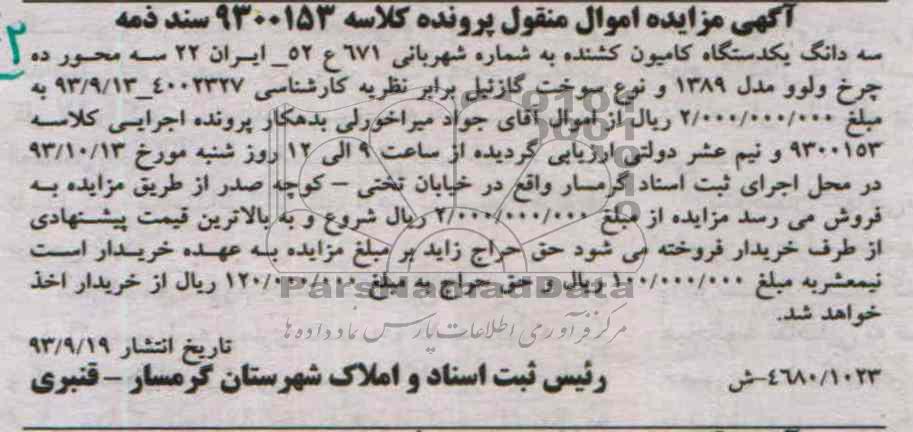 آگهی مزایده اموال منقول پرونده کلاسه ۹۳۰۰۱۵۳ سند ذمه
سه دانگ یکدستگاه کامیون کشنده به شماره شهربانی ۶۷۱ ع ۵۲_ ایران ۲۲ سه محور ده
چرخ ولوو مدل ۱۳۸۹ و نوع سوخت گازئیل برابر نظریه کارشناسی ۴۰۰۲۳۲۷_۹۳/۹/۱۳ به
مبلغ ۲/۰۰۰/۰۰۰/۰۰۰ ریال از اموال آقای جواد میراخورلی بدهکار پرونده اجرایی کلاسه
۹۳۰۰۱۵۳ و نیم عشر دولتی ارزیابی گردیده از ساعت ۹ الی ۱۲ روز شنبه مورخ ۹۳/۱۰/۱۳
در محل اجرای ثبت اسناد گرمسار واقع در خیابان تختی – کوچه صدر از طریق مزایده به
فروش می رسد مزایده از مبلغ ۲/۰۰۰/۰۰۰/۰۰۰ ریال شروع و به بالاترین قیمت پیشنهادی
از طرف خریدار فروخته می شود حق حراج زاید بر مبلغ مزایده به عهده خریدار است
نیمعشربه مبلغ ۱۰۰/۰۰۰/۰۰۰ ریال و حق حراج به مبلغ ۱۲۰/۰۰۰/۰۰۰ ریال از خریدار اخذ
خواهد شد.
تاریخ انتشار ۹۳/۹/۱۹
۴۶۸۰/۱۰۲۳-ش
رئیس ثبت اسناد و املاک شهرستان گرمسار – قنبری
ParsNamadData
مرکز فرآوری اطلاعات پارس نماد داده ها
۲